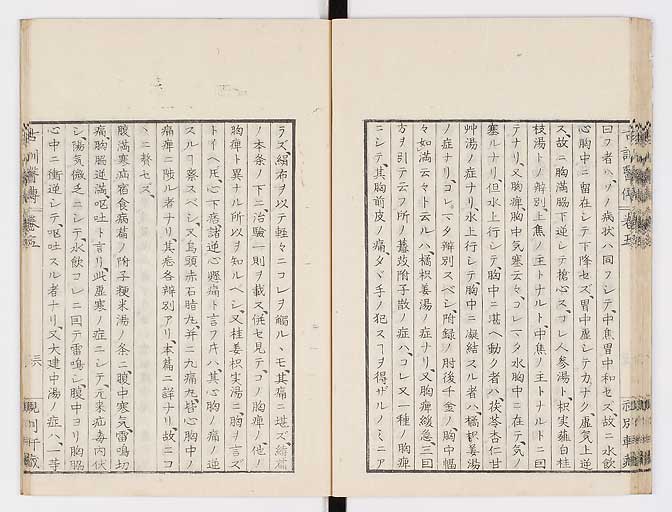 曰フ者ハソノ病状ハ同フシテ中焦胃中和セズ故ニ水飲
心胸中ニ留在シテ下降セズ胃中虚シテ力ナク虚気上逆
ス故ニ胸満脇下逆シテ搶心スコレ人参湯ト枳実薤白桂
枝湯トノ辨別上焦ノ主トナルト中焦ノ主トナルトニ
テナリ又胸痺胸中気塞云々コレマタ水胸中ニ在テ気ノ
塞ルナリ但水上行シテ胸中ニ堪ヘ動ク者ハ茯苓杏仁甘
艸湯ノ症ナリ水上行シテ胸中ニ凝結スル者ハ橘枳姜湯
ノ症ナリコレマタ辨別スベシ附録ノ肘後千金ノ胸中愊
々如満云々ト云ルハ橘枳姜湯ノ症ナリ又胸痺緩急三曰
方ヲ引テ云フ所ノ薏苡附子散ノ症ハコレ又一種ノ胸痺
ニシテ其胸前皮ノ痛タヾ手ノ犯スヿヲ得ザルノミニア
ラズ絹布ヲ以テ軽々ニコレヲ觸ルヽモ其痛ニ堪ズ續篇
ノ本条ノ下ニ治驗一則ヲ載ス併セ見テコノ胸痺ノ他ノ
胸痺ト異ナル所以ヲ知ルベシ又桂姜枳実湯ニ胸ヲ言ズ
トイヘ𪜈心下痞諸逆心懸痛ト言フ片ハ其心胸ノ痛ノ逆
スルヿ察スベシ又烏頭赤石脂丸并ニ九痛丸皆心胸中ノ
痛痺ニ陟ル者ナリ其差各辨別アリ本篇ニ詳ナリ故ニコ
ヽニ贅セズ
腹満寒疝宿食病篇ノ附子粳米湯ノ条ニ腹中寒気雷鳴切
痛胸脇逆満嘔吐ト言リ此虚寒ノ症ニシテ元来疝毒内伏
シ陽気微乏ニシテ水飲コレニ因テ雷鳴シ腹中ヨリ胸脇
心中ニ衝逆シテ嘔吐スル者ナリ又大建中湯ノ症ハ一等
古訓醫傳
巻五